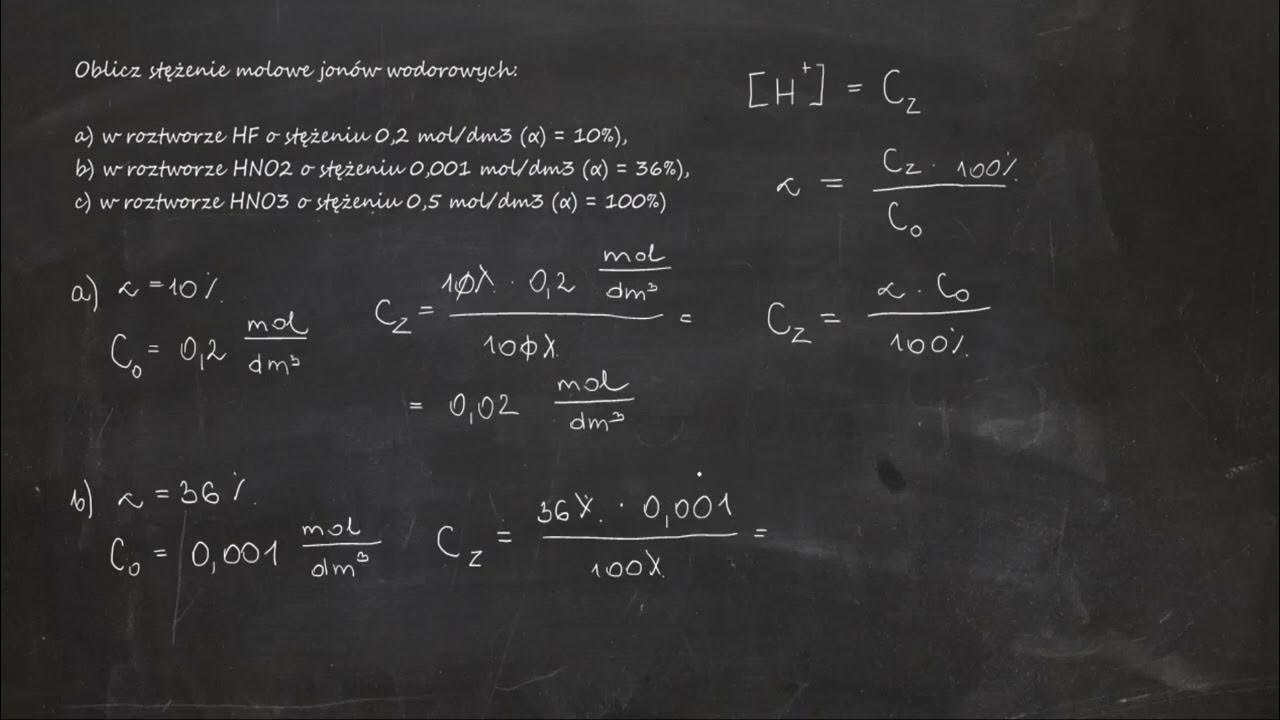 Oblicz stężenie molowe jonów wodorowych:
a) w roztworze HF o stężeniu 0,2 mol/dm3 (α) = 10%),
b) w roztworze HNO2 o stężeniu 0,001 mol/dm3 (α) = 36%),
c) w roztworze HNO3 o stężeniu 0,5 mol/dm3 (α) = 100%)
[H⁺] = Cz
α = Cz · 100% / C₀
Cz = α · C₀ / 100%
a) α = 10%
C₀ = 0,2 mol/dm³
Cz = 10% · 0,2 mol/dm³ / 100% =
= 0,02 mol/dm³
b) α = 36%
C₀ = 0,001 mol/dm³
Cz = 36% · 0,001 / 100% =